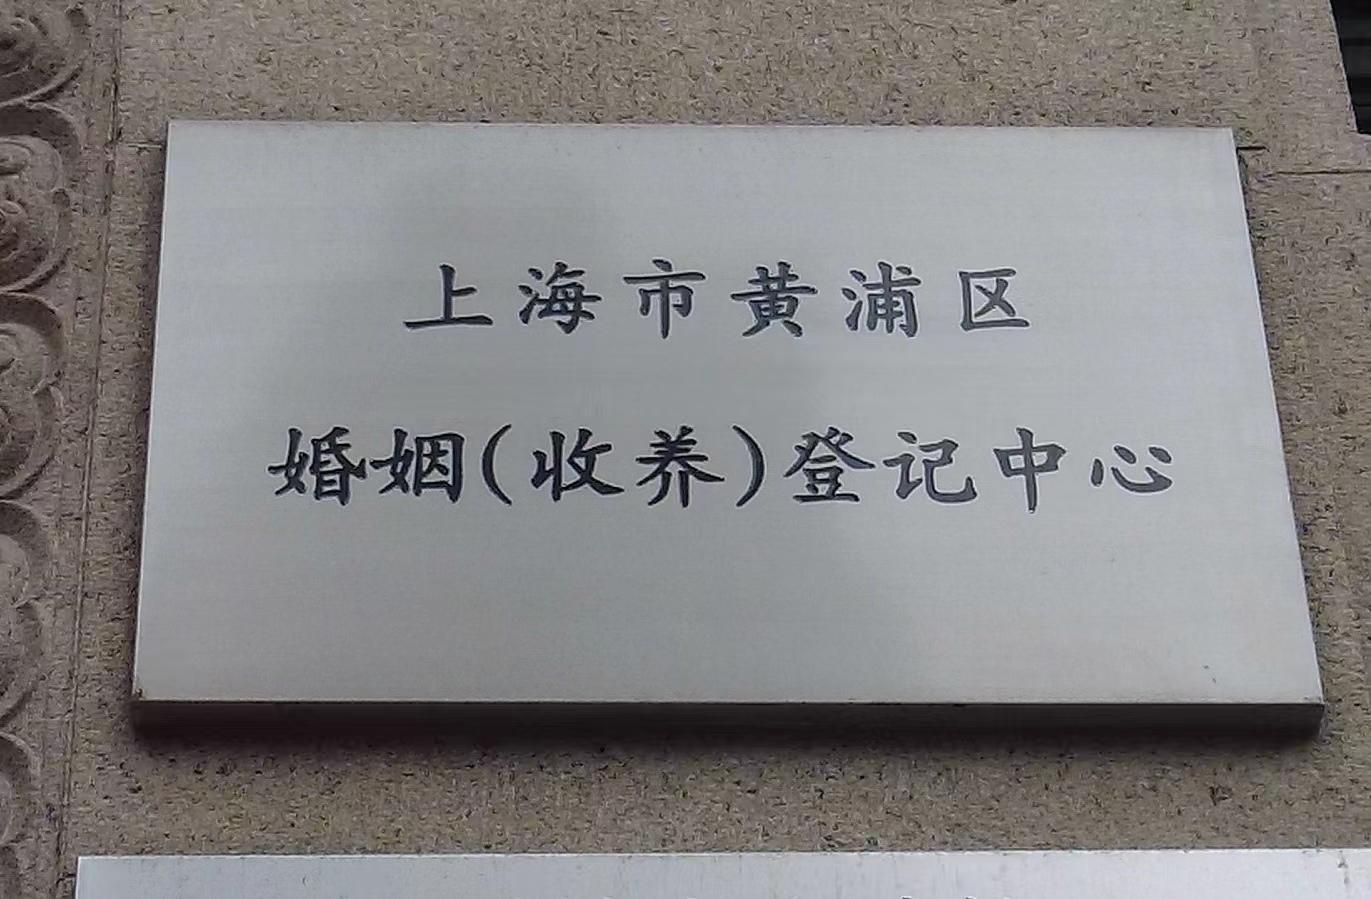 上海市黄浦区
婚姻(收养)登记中心